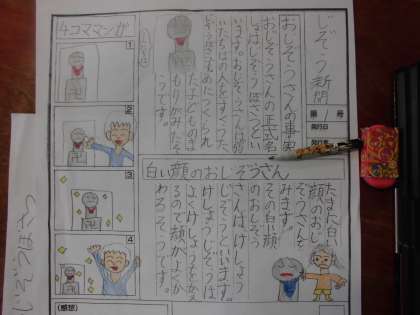 じぞう新聞
第1号
発行日
おじぞうさんの事実
おじぞうさんの正式名
はじぞうぼさつとい
います。おじぞうさんは弱
の人をすくう
ためにつくられ
た子どものき
もりがみたそ
うです。
白い顔のおじぞうさん
たまに白い
顔のおじ
ぞうさんを
みます。
その白い顔
のおじぞう
さんはけしょう
じぞうといいます。
けしょうじぞうは
よくけしょうを
るので顔がよくか
わるそうです。
4コママンガ
1
2
3
4
(感想)
じぞうぼさつ